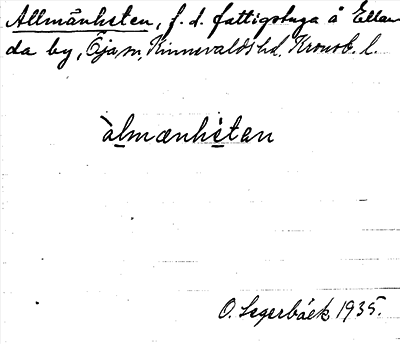 Allmänheten, f. d. fattigstuga å Ellan-
da by, Öja sn, Kinnevalds hd. Kronob. l.
àlmænhetan
O. Segerbäck 1935.